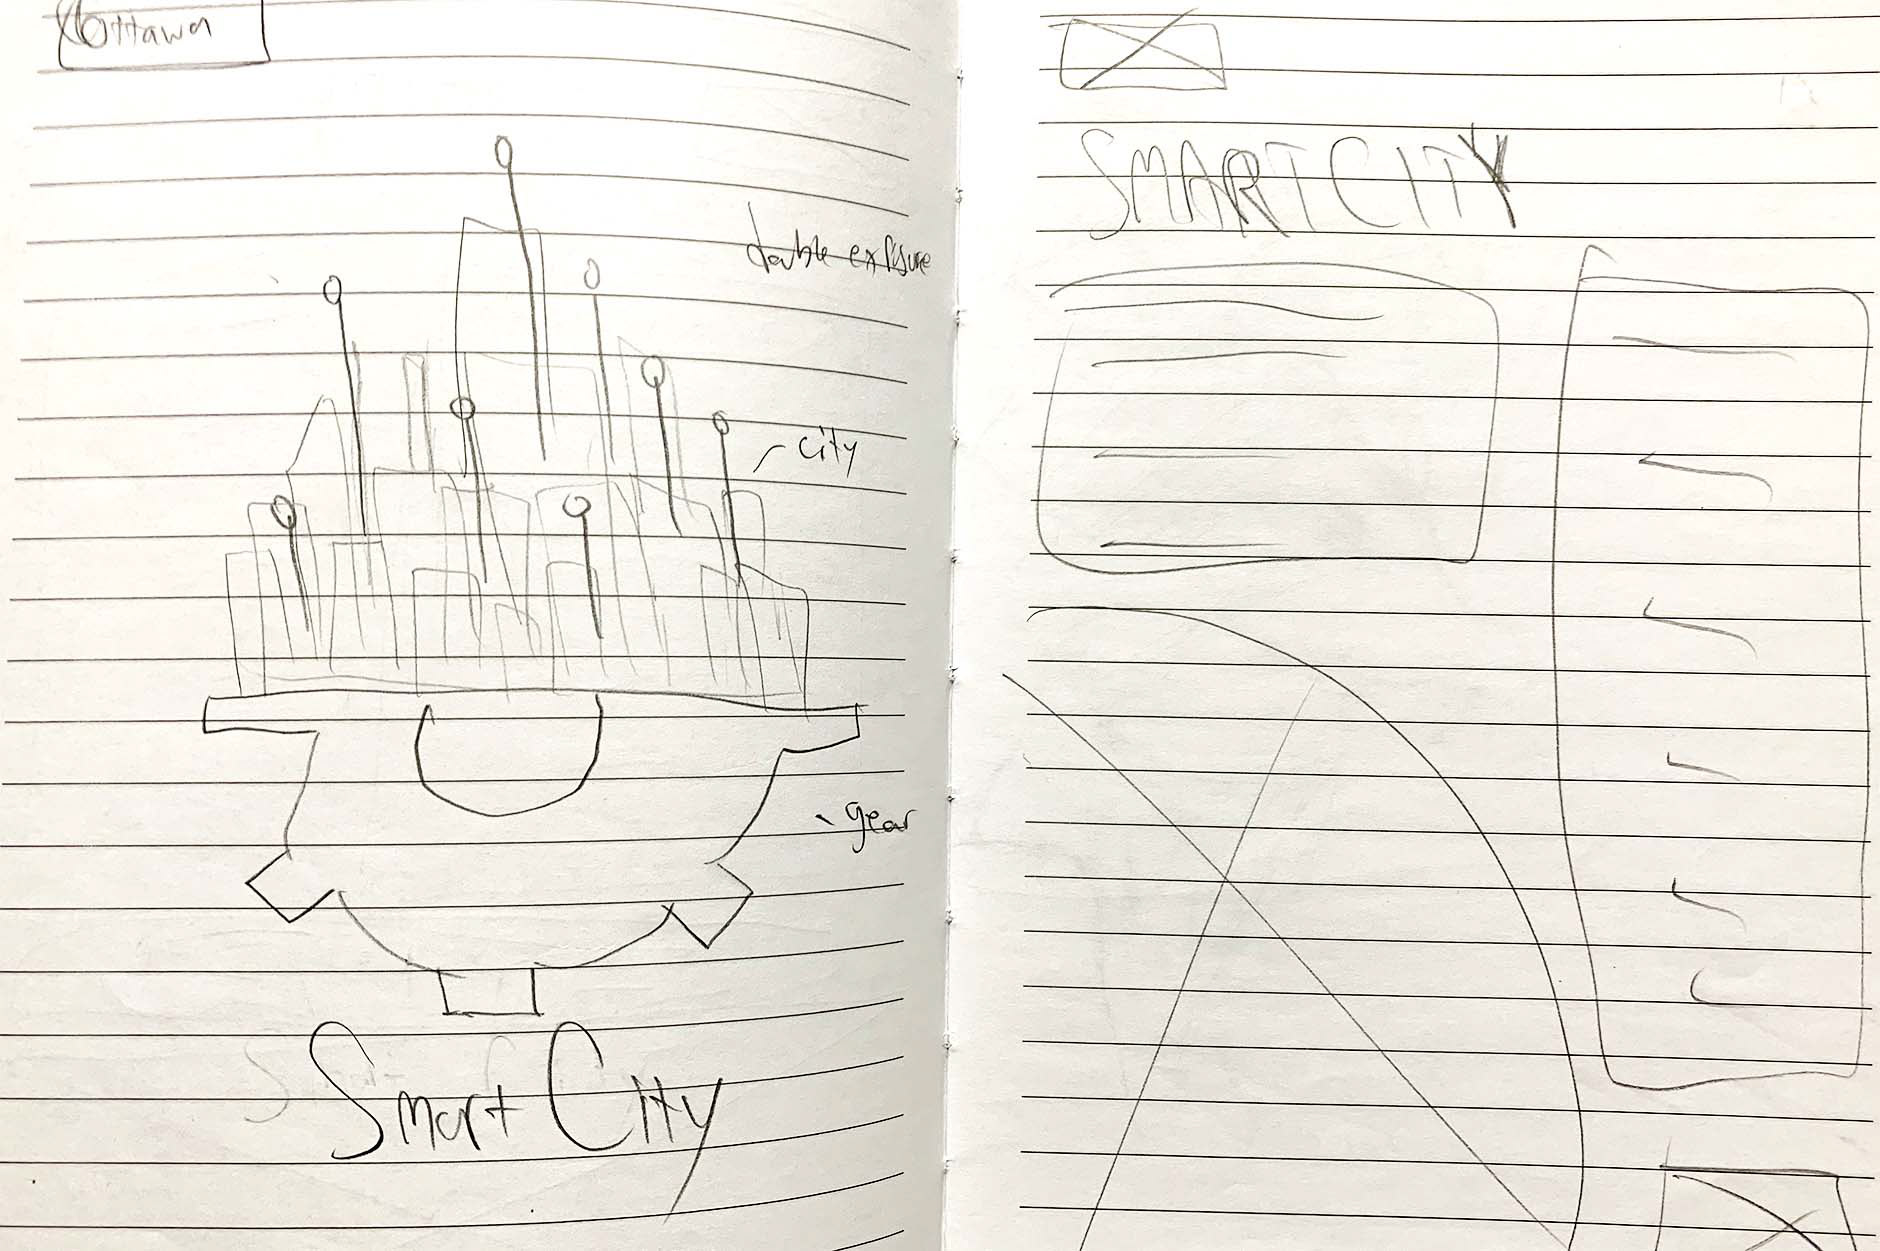 Ottawa
double exposure
city
gear
Smart City
SMART CITY